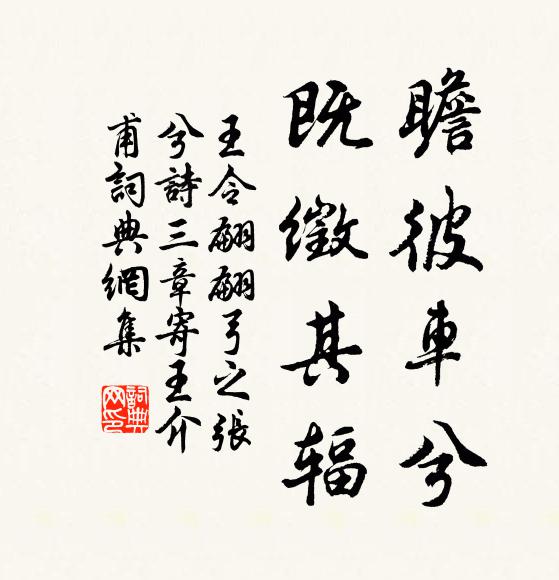 瞻彼車兮
既繳其辐
王令翩翩弓之張
兮詩三章寄王介
甫詞典網集
詞典網印